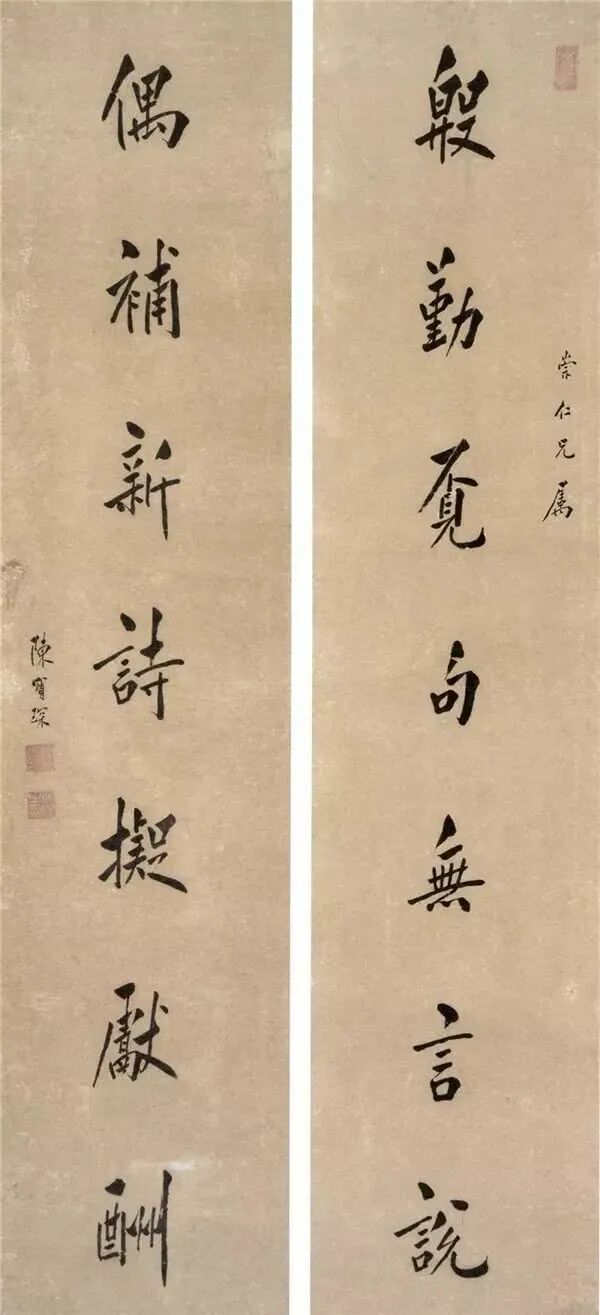 崇仁兄属
殷勤覔句無言說
偶補新詩擬獻酬
陳寶琛